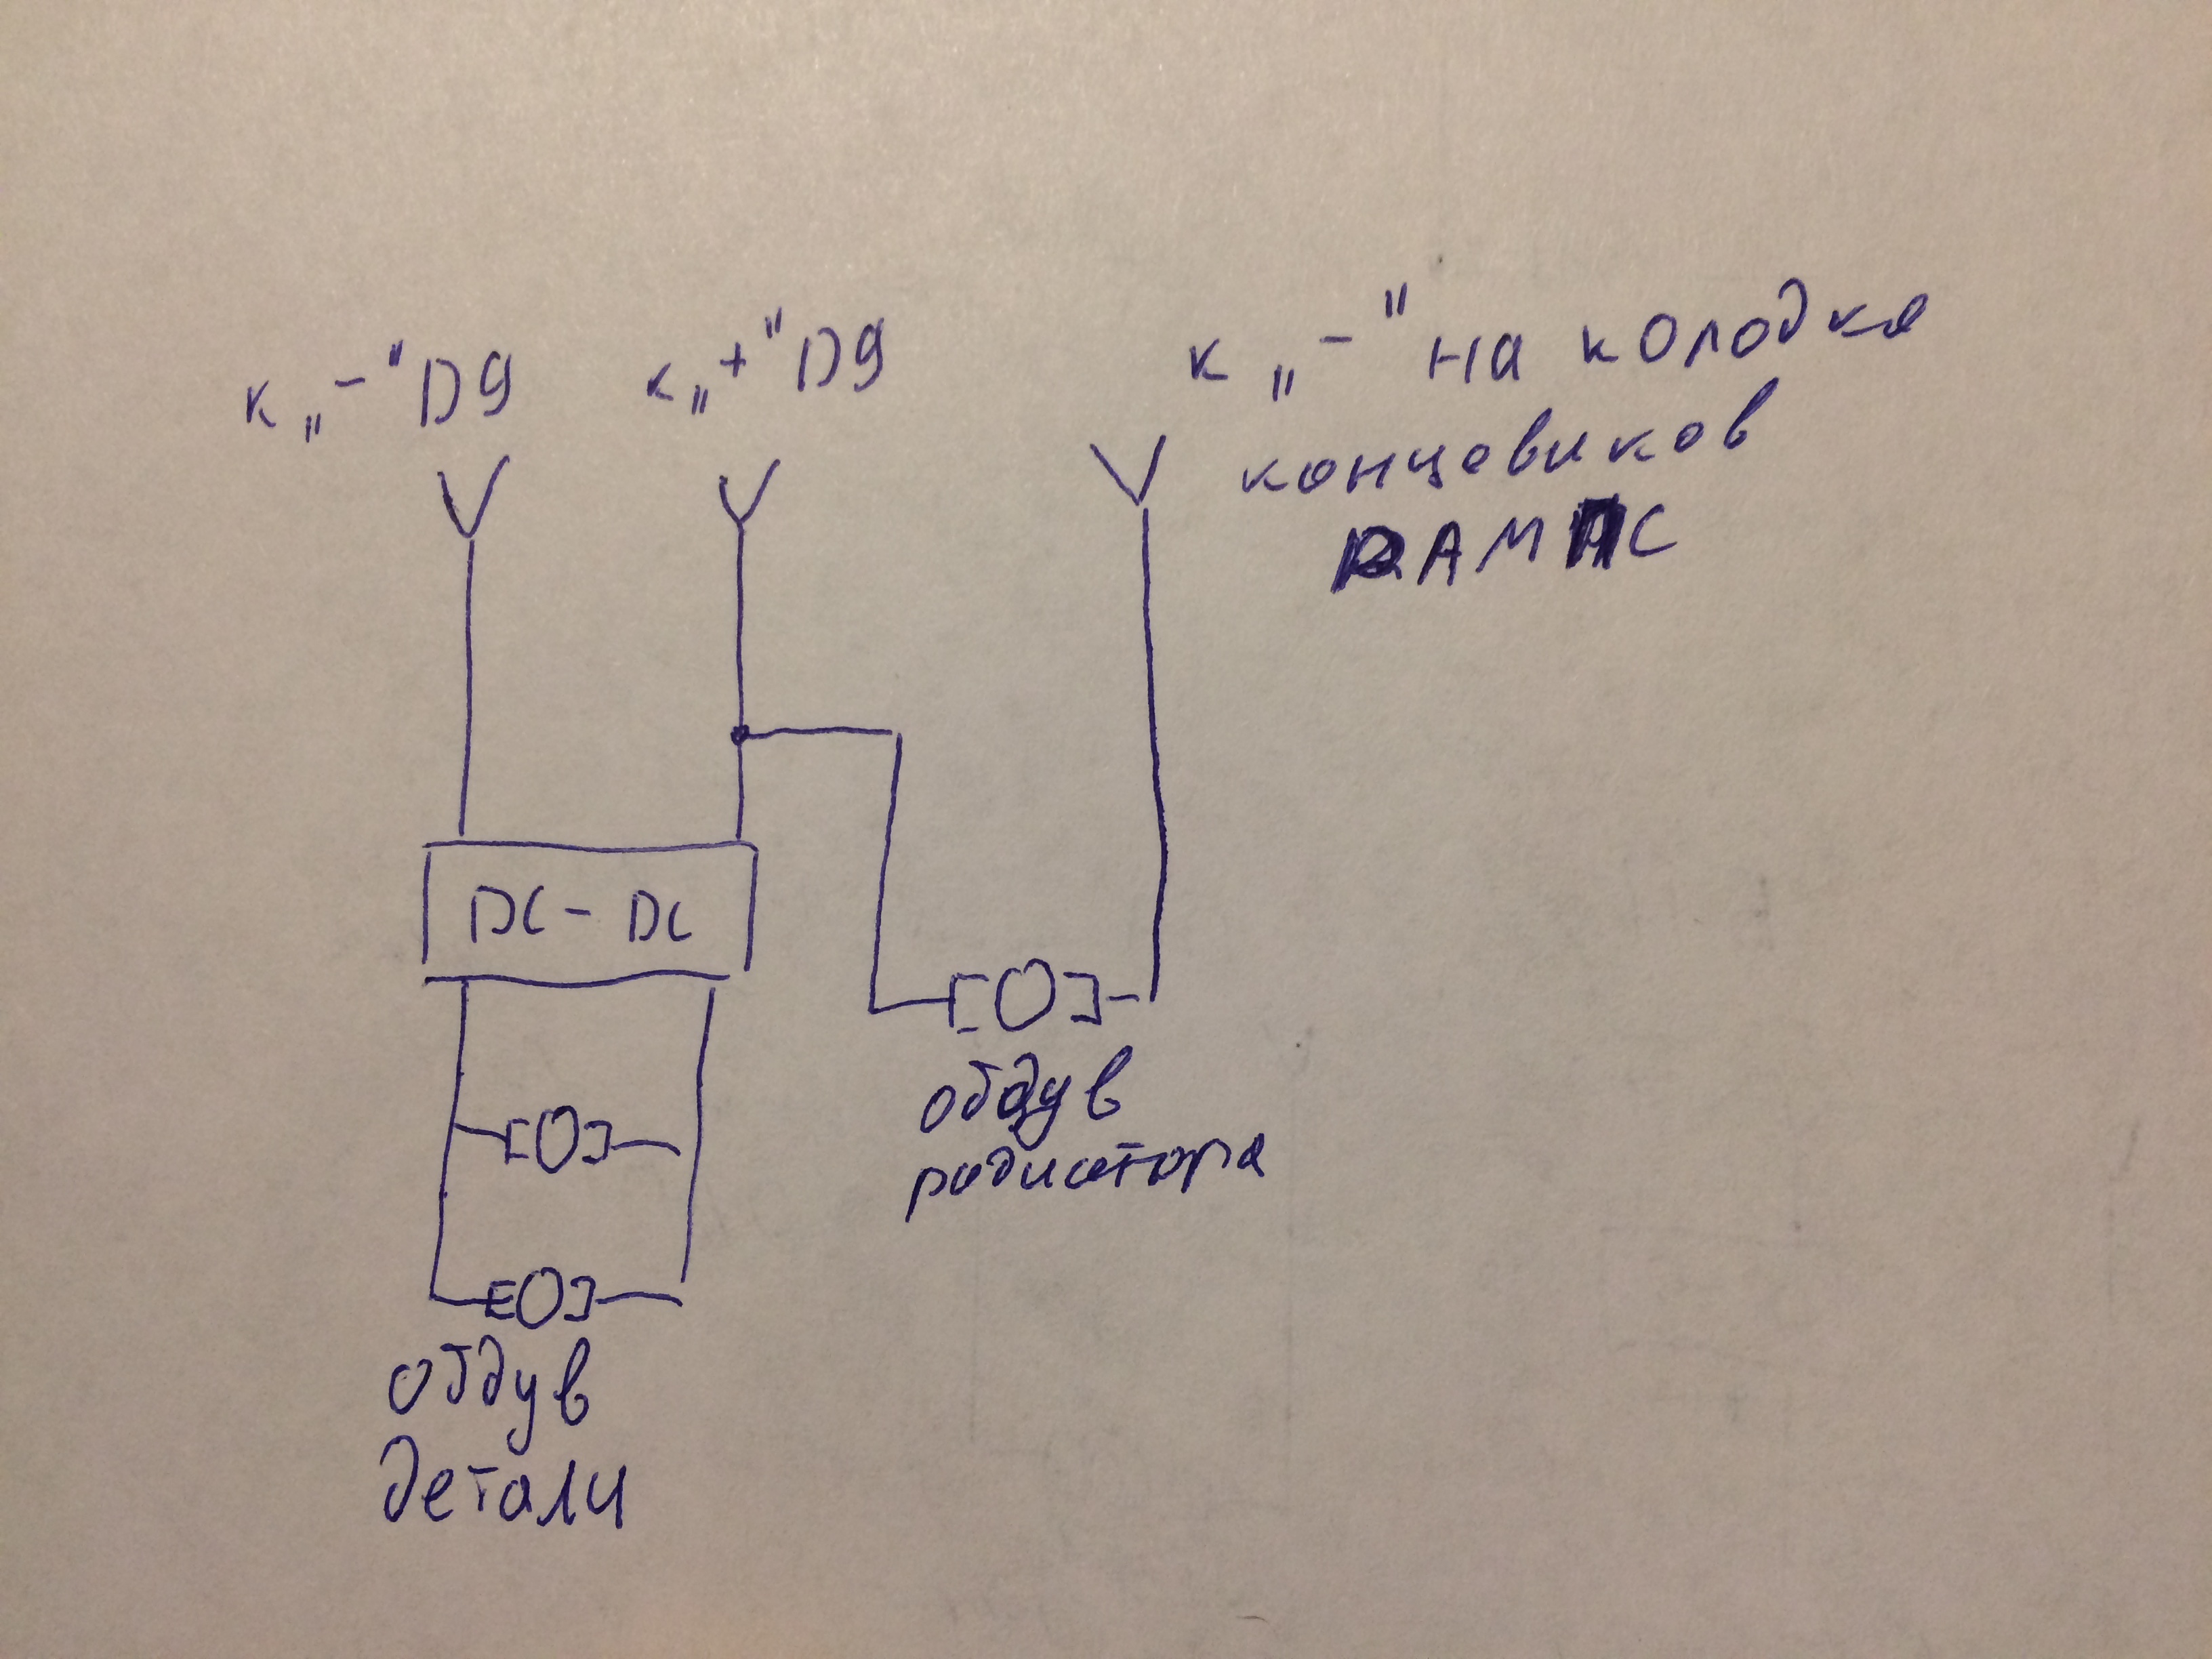 к „-" D9
к „+" D9
к „-" на колодке
концевиков
РАМПС
DC-DC
обдув
радиатора
обдув
детали